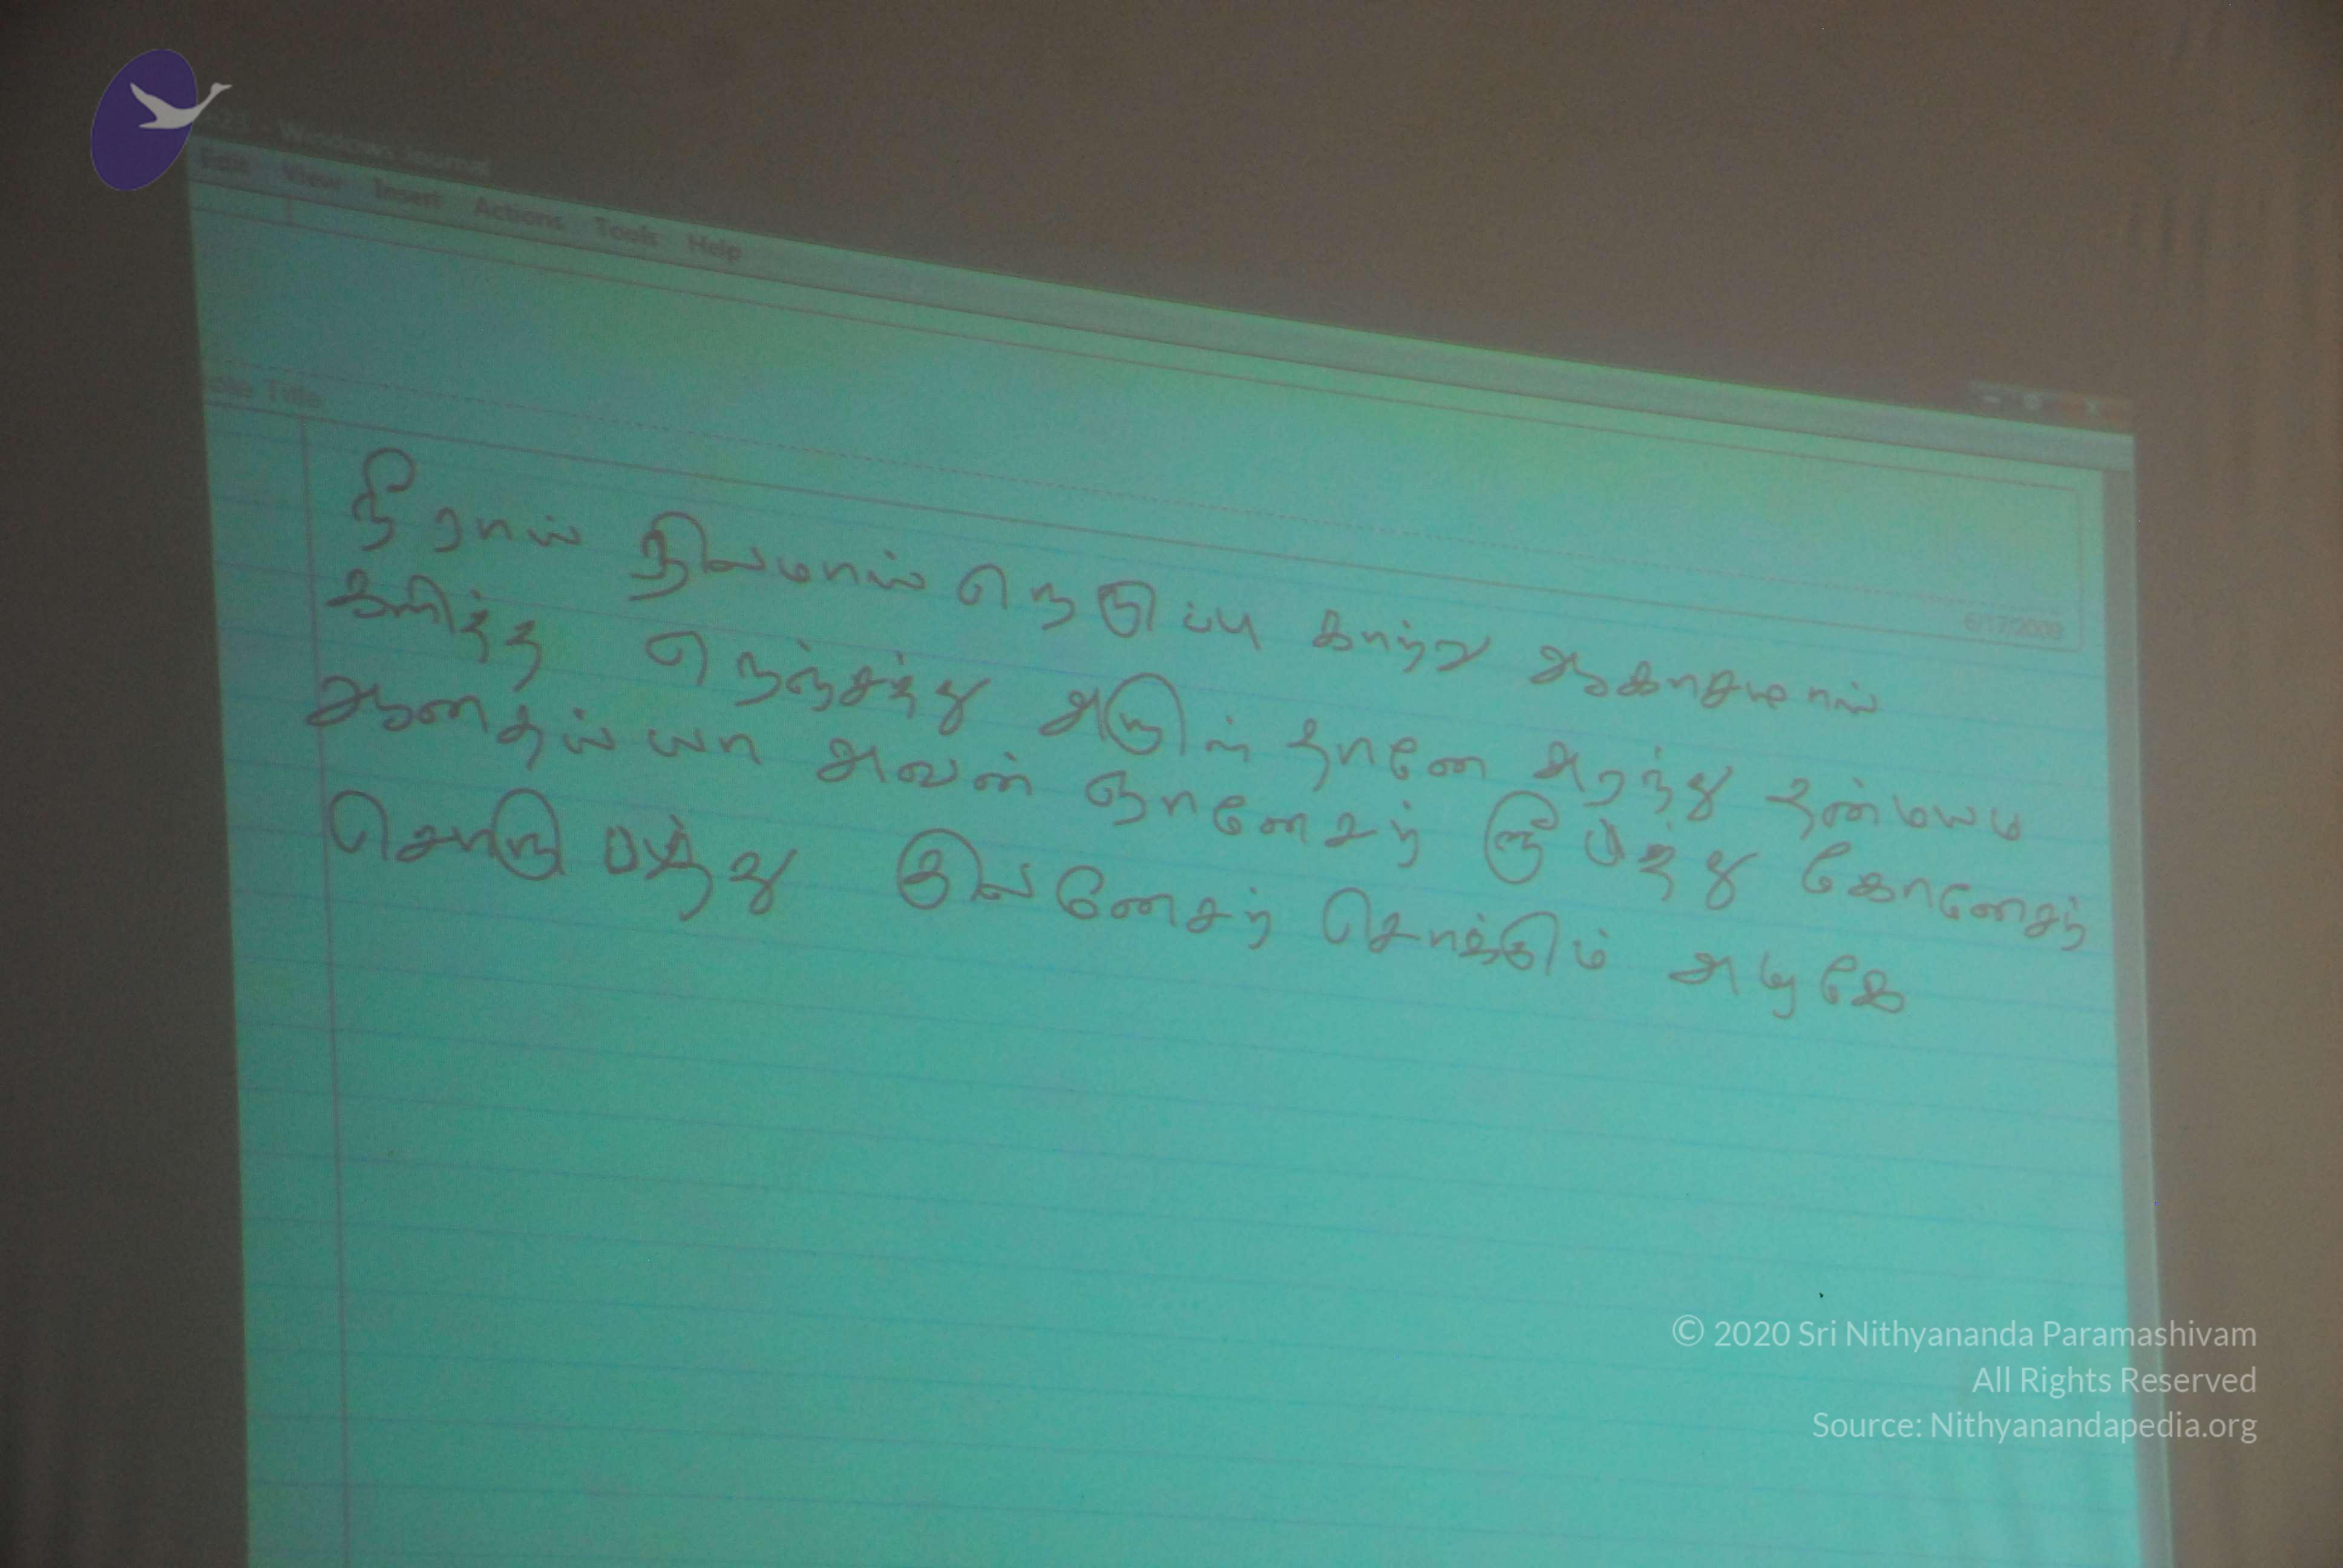 Windows Journal
Edit View Insert Actions Tools Help
Note Title
6/17/2009
நீராய் நிலமாய் நெருப்பு காற்று ஆகாசமாய்
களித்த நெஞ்சத்து அருள் தானே அரந்து தன்மயம
ஆனதய்யா அவன் ஞானேசர் ரூபத்து கோனேசர்
சொரு குலனேசர் சொக்கும் அடிகே
© 2020 Sri Nithyananda Paramashivam
All Rights Reserved
Source: Nithyanandapedia.org